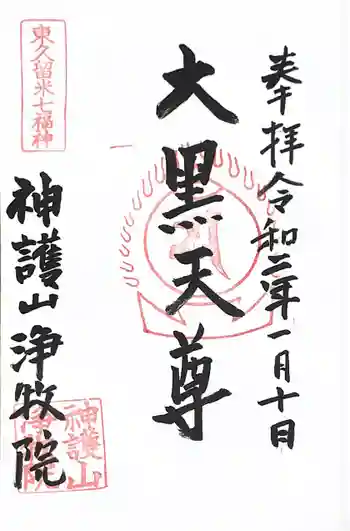 奉拝令和二年一月十日
大黒天尊
東久留米七福神
神護山浄牧院
神護山
浄牧院